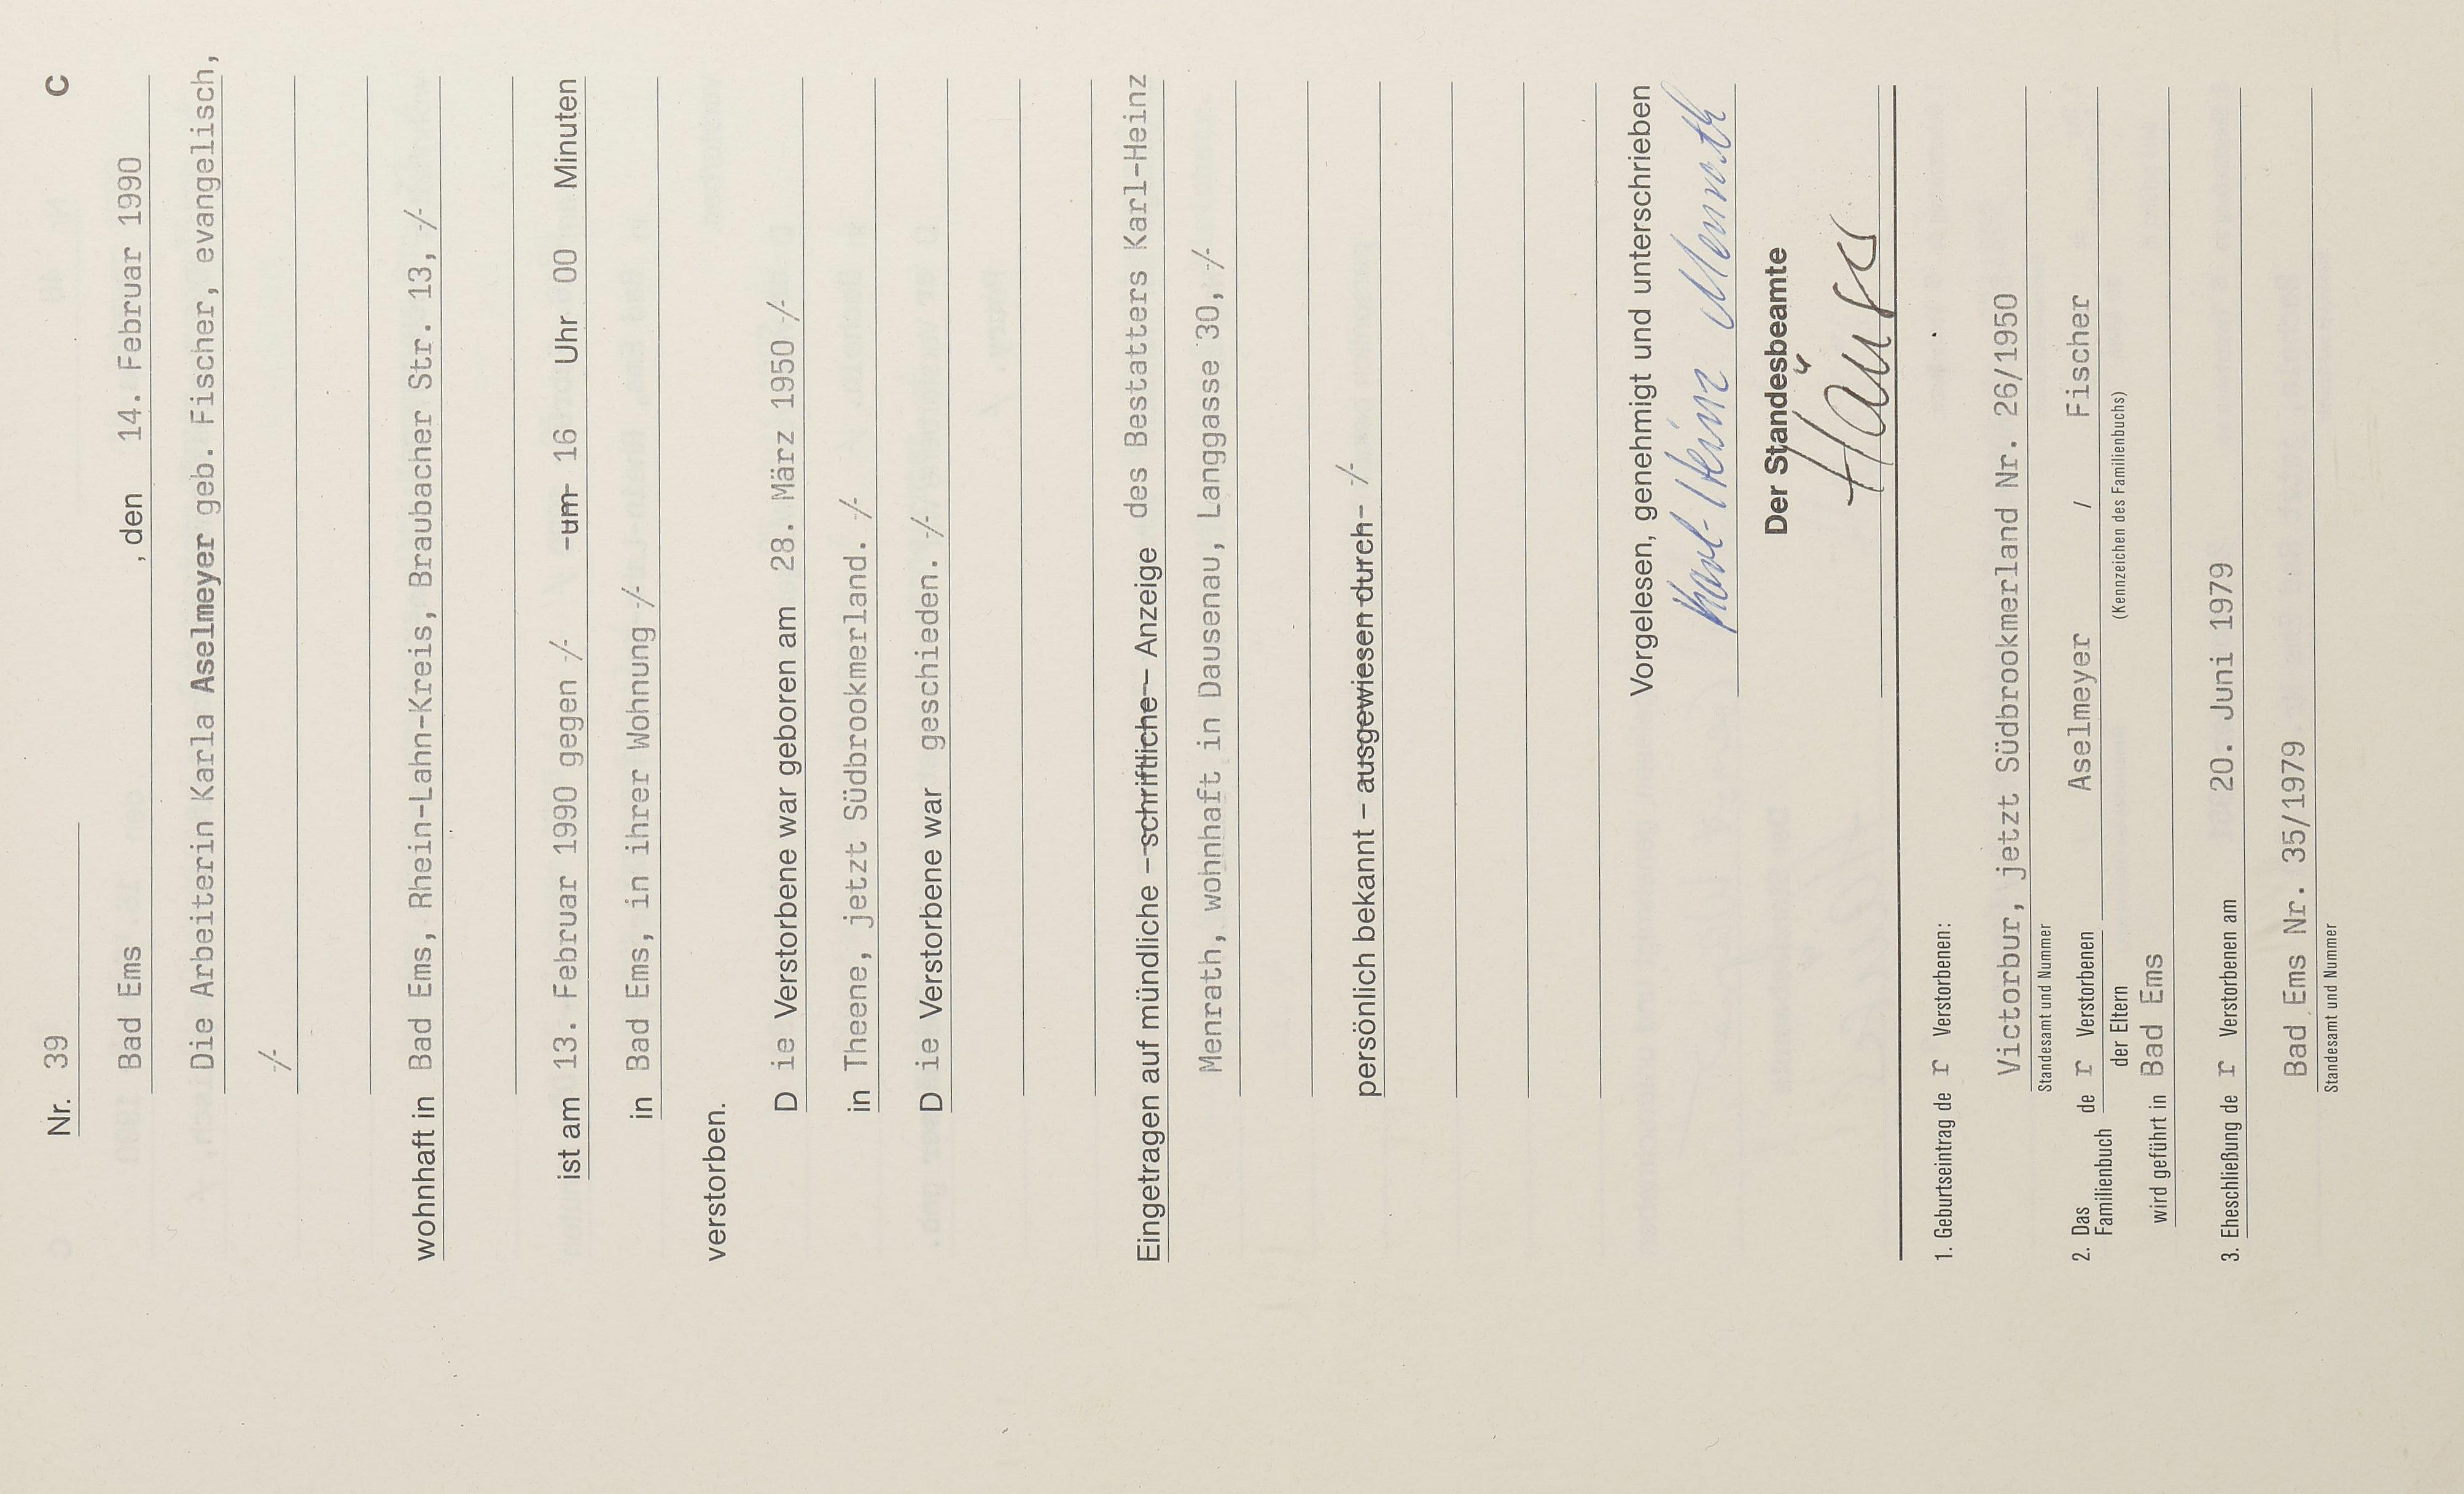 Nr. 39 C
Bad Ems , den 14. Februar 1990
Die Arbeiterin Karla Aselmeyer geb. Fischer, evangelisch,
-/-
wohnhaft in Bad Ems, Rhein-Lahn-Kreis, Braubacher Str. 13, -/-
ist am 13. Februar 1990 gegen -/- -um- 16 Uhr 00 Minuten
in Bad Ems, in ihrer Wohnung -/-
verstorben.
D ie Verstorbene war geboren am 28. März 1950 -/-
in Theene, jetzt Südbrookmerland. -/-
D ie Verstorbene war geschieden. -/-
Eingetragen auf mündliche – schriftliche – Anzeige des Bestatters Karl-Heinz
Menrath, wohnhaft in Dausenau, Langgasse 30, -/-
persönlich bekannt – ausgewiesen durch – -/-
Vorgelesen, genehmigt und unterschrieben
Karl-Heinz Menrath
Der Standesbeamte
1. Geburtseintrag de r Verstorbenen:
Victorbur, jetzt Südbrookmerland Nr. 26/1950
Standesamt und Nummer
2. Das Familienbuch de r Verstorbenen Aselmeyer / Fischer
der Eltern (Kennzeichen des Familienbuchs)
wird geführt in Bad Ems
3. Eheschließung de r Verstorbenen am 20. Juni 1979
Bad Ems Nr. 35/1979
Standesamt und Nummer